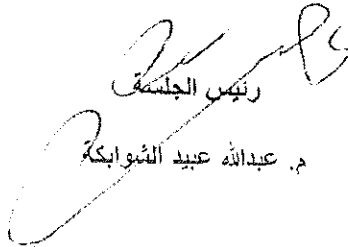 رئيس الجلسة
م. عبدالله عبيد الشوابكة